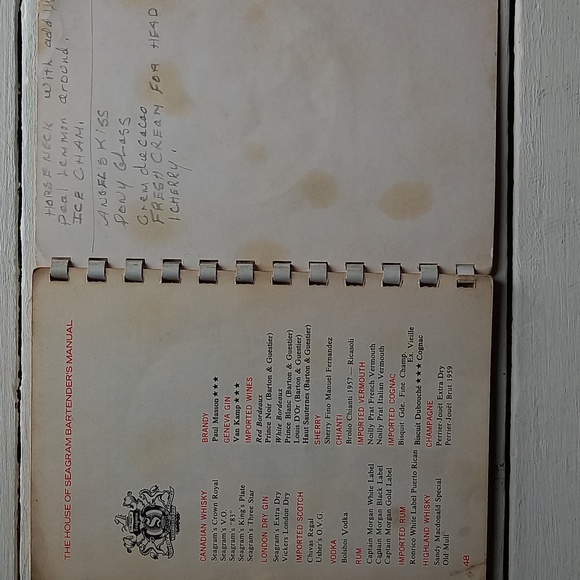 THE HOUSE OF SEAGRAM BARTENDER'S MANUAL
CANADIAN WHISKY
Seagram's Crown Royal
Seagram's V.O.
Seagram's "83"
Seagram's King's Plate
Seagram's Three Star
LONDON DRY GIN
Seagram's Extra Dry
Vickers London Dry
IMPORTED SCOTCH
Chivas Regal
Usher's O.V.G.
VODKA
Bolshoi Vodka
RUM
Captain Morgan White Label
Captain Morgan Black Label
Captain Morgan Gold Label
IMPORTED RUM
Ronrico White Label Puerto Rican
HIGHLAND WHISKY
Sandy Macdonald Special
Old Mull
48
BRANDY
Paul Masson ★★★
GENEVA GIN
Van Kamp ★★★
IMPORTED WINES
Red Bordeaux
Prince Noir (Barton & Guestier)
White Bordeaux
Prince Blanc (Barton & Guestier)
Louis D'Or (Barton & Guestier)
Haut Sauternes (Barton & Guestier)
SHERRY
Sherry Fino Manuel Fernandez
CHIANTI
Brolio Chianti 1957 — Ricasoli
IMPORTED VERMOUTH
Noilly Prat French Vermouth
Noilly Prat Italian Vermouth
IMPORTED COGNAC
Bisquit Gde. Fine Champ.
Ex. Vieille
Biscuit Dubouché ★★★ Cognac
CHAMPAGNE
Perrier-Jouët Extra Dry
Perrier-Jouët Brut 1959
HORSE NECK with add
Peal Lemmon around.
ICE CHAM.
ANGELS KISS
PONY GLASS
Crem du cacao
FRESH CREAM FOR HEAD
1 CHERRY.